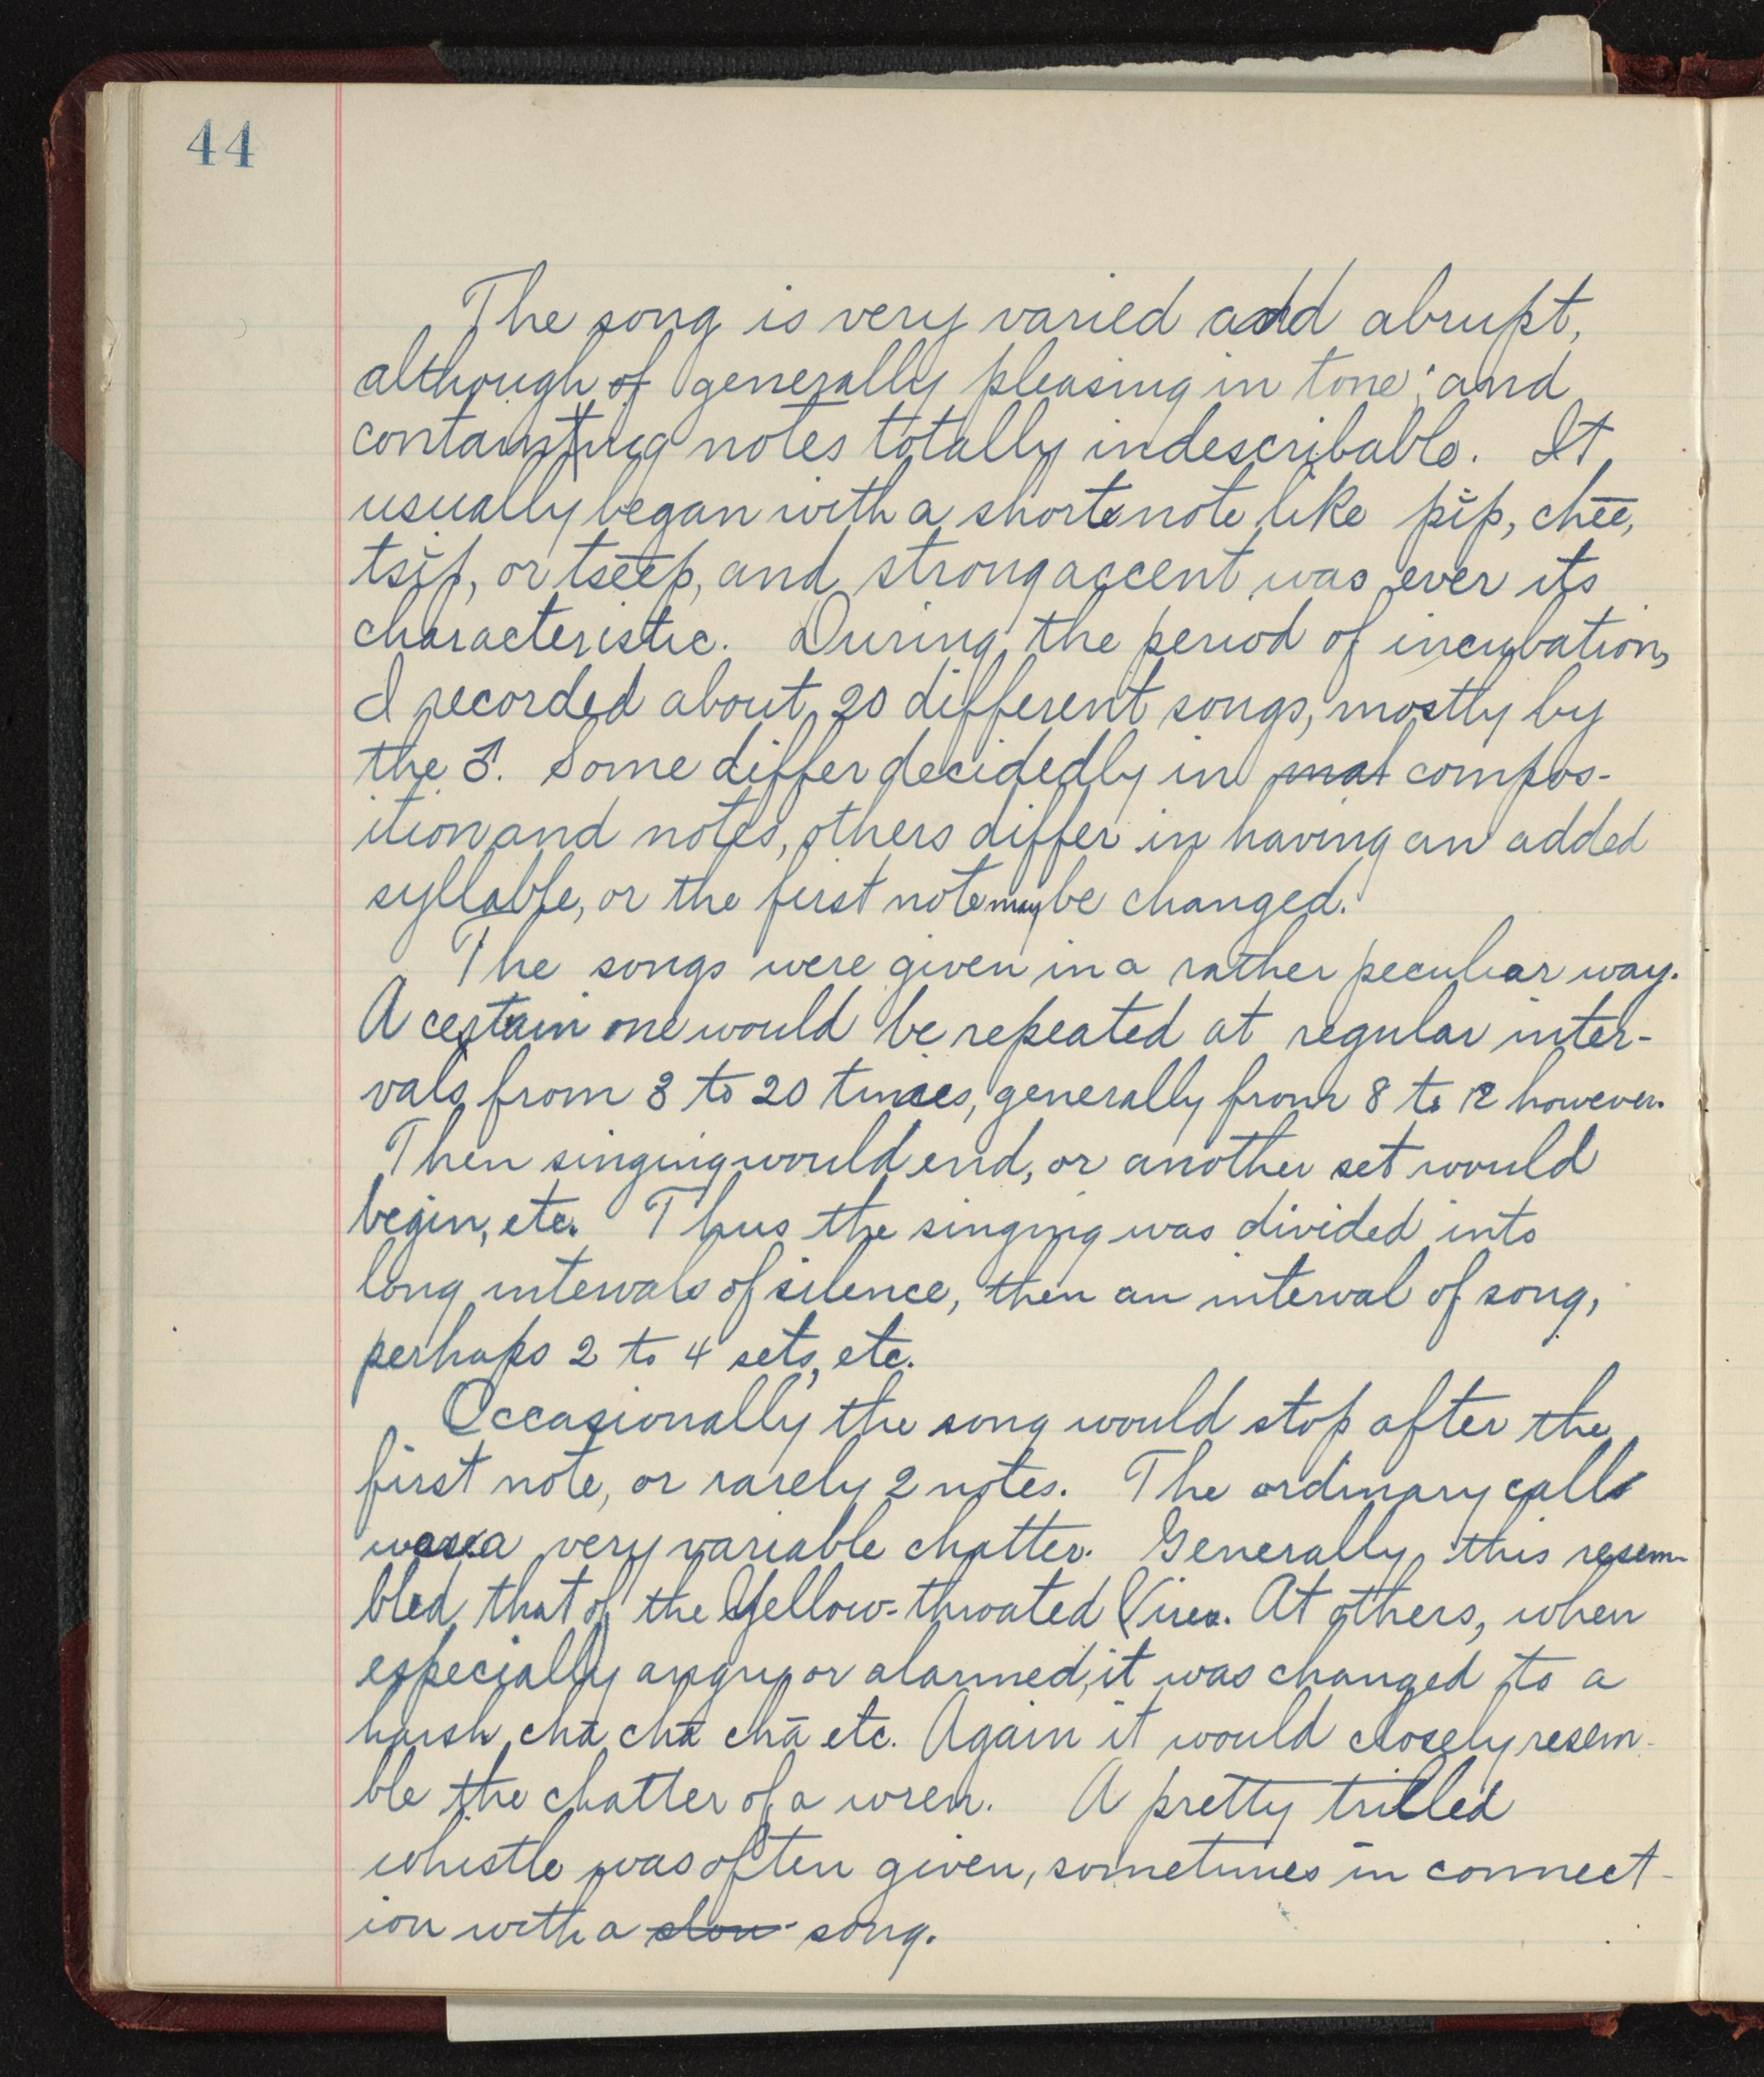 44
The song is very varied and abrupt,
although of generally pleasing in tone; and
containing notes totally indescribable. It
usually began with a short note like pĭp, chēē,
tsĭp, or tsēēp, and strong accent was ever its
characteristic. During the period of incubation,
I recorded about 20 different songs, mostly by
the ♂. Some differ decidedly in compos-
ition and notes, others differ in having an added
syllable, or the first note may be changed.
The songs were given in a rather peculiar way.
A certain one would be repeated at regular inter-
vals from 3 to 20 times, generally from 8 to 12 however.
Then singing would end, or another set would
begin, etc. Thus the singing was divided into
long intervals of silence, then an interval of song,
perhaps 2 to 4 sets, etc.
Occasionally the song would stop after the
first note, or rarely 2 notes. The ordinary call
was a very variable chatter. Generally this resem-
bled that of the Yellow-throated Vireo. At others, when
especially angry or alarmed, it was changed to a
harsh chā chā chā etc. Again it would closely resem-
ble the chatter of a wren. A pretty trilled
whistle was often given, sometimes in connect-
ion with a slow song.